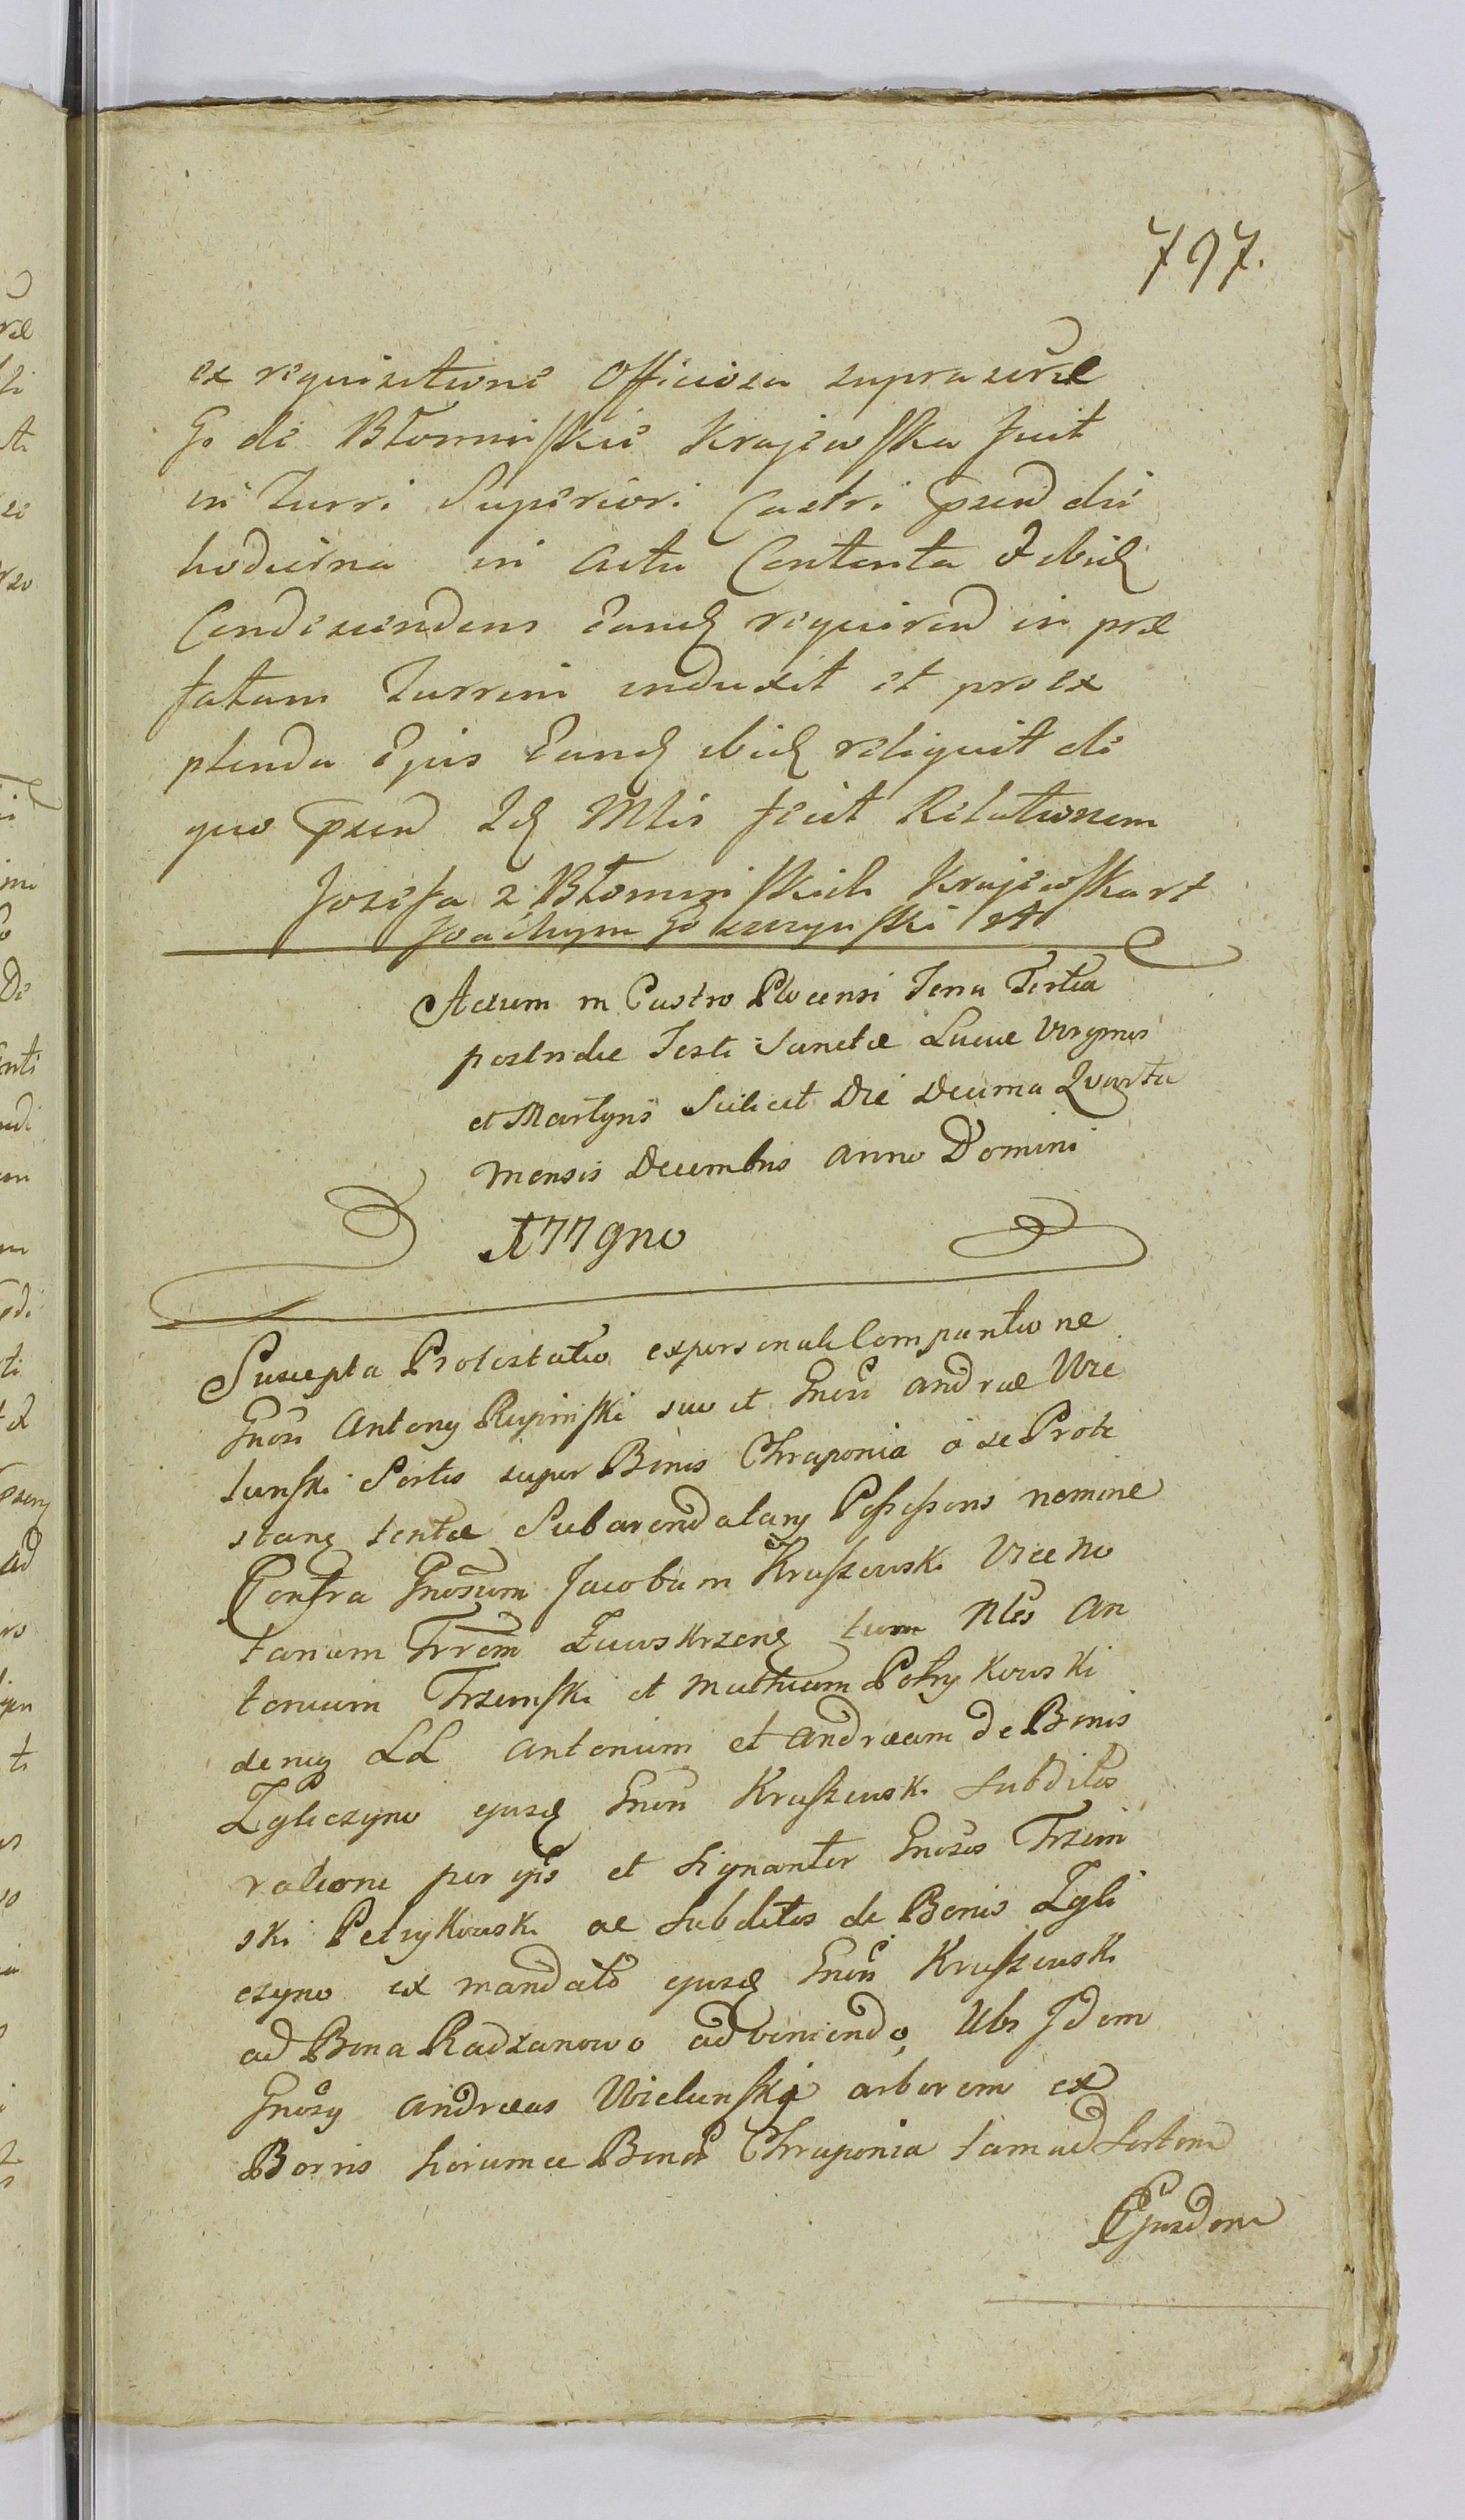 797.
ex requisitione Officiosa suprascrae
G. de Błomińskie Krajewska fuit
in Turri Superiori Castri psen die
hodierna in actu Contenta & ibid
Condescendens Eand requirend in præ
fatam Turrim induxit et pro ex
plenda Ejus Eand ibid reliquit de
quo psen Id Mlis fecit Relationem
Jozefa z Błomińskich Krajewska
Joachym Goszczynski
Actum in Castro Plocensi Feria Tertia
postridie Festi Sanctæ Luciæ Virginis
et Martyris Scilicet Die Decima Quarta
Mensis Decembris Anno Domini
1779no
Suscepta Protestatio ex personali Comparitione
Gnosi Antony Rypinski suo et Gnosi Andreæ Wie
lunski Sortis super Bonis Chraponia a se Prote
stanq tentæ Subarendatary Possessoris nomine
Contra Gnosum Jacobum Kruszewski Vice No
tarium Trrem Zawskrzenq tum Nlos An
tonium Trzinski et Mathiam Petrykowski
deniq LL Antonium et Andream De Bonis
Zgliczyno ejusd Gnosi Kruszewski Subditos
ratione per ipsos et Signanter Gnosos Trzin
ski Petrykowski ac Subditos de Bonis Zgli
czyno ex mandato ejusd Gnosi Kruszewski
ad Bona Radzanowo adveniendo, Ubi Idem
Gnosy Andreas Wielunski arborem ex
Borris horumce Bonor Chraponia tam ad Sortem
Ejusdem